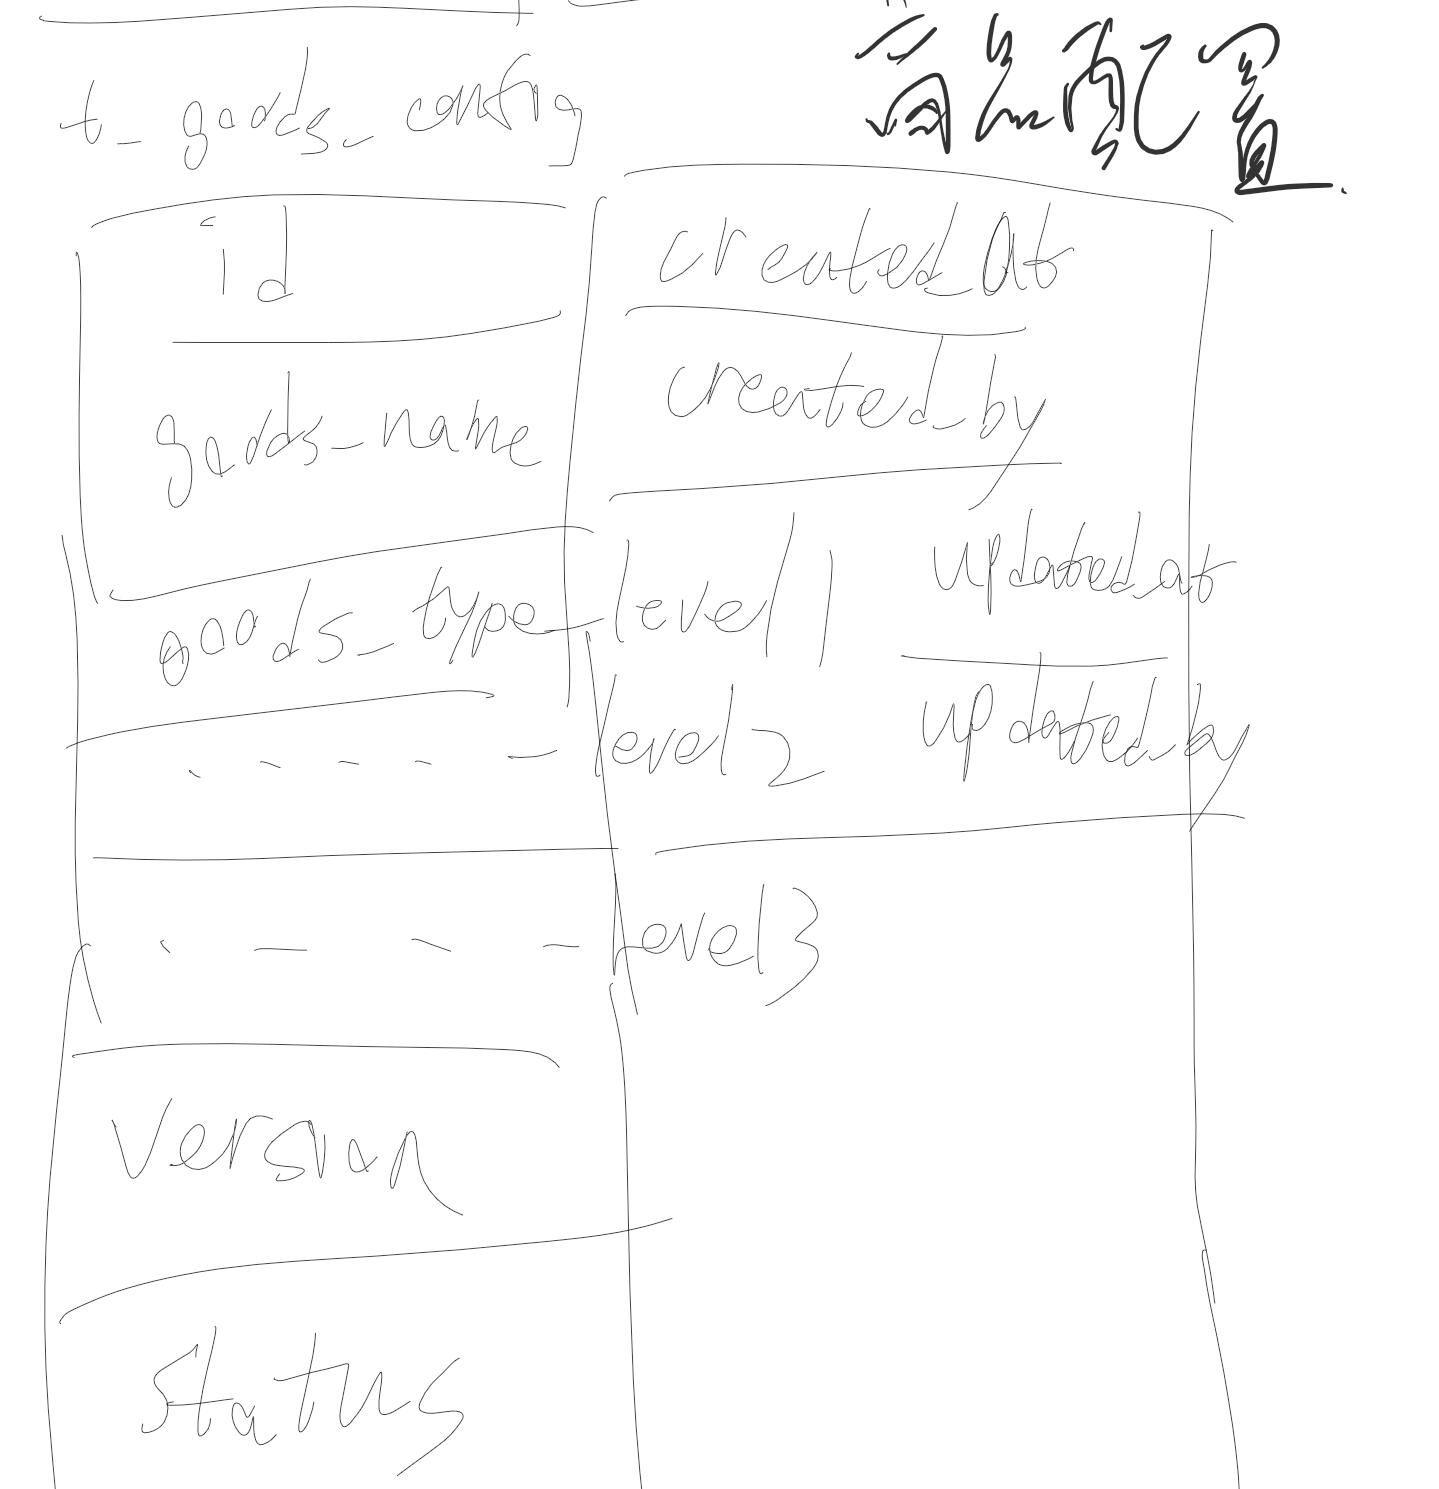 t_goods_config
商品配置
id
goods_name
goods_type_level1
- - - - - level2
- - - - level3
version
status
created_at
created_by
updated_at
updated_by